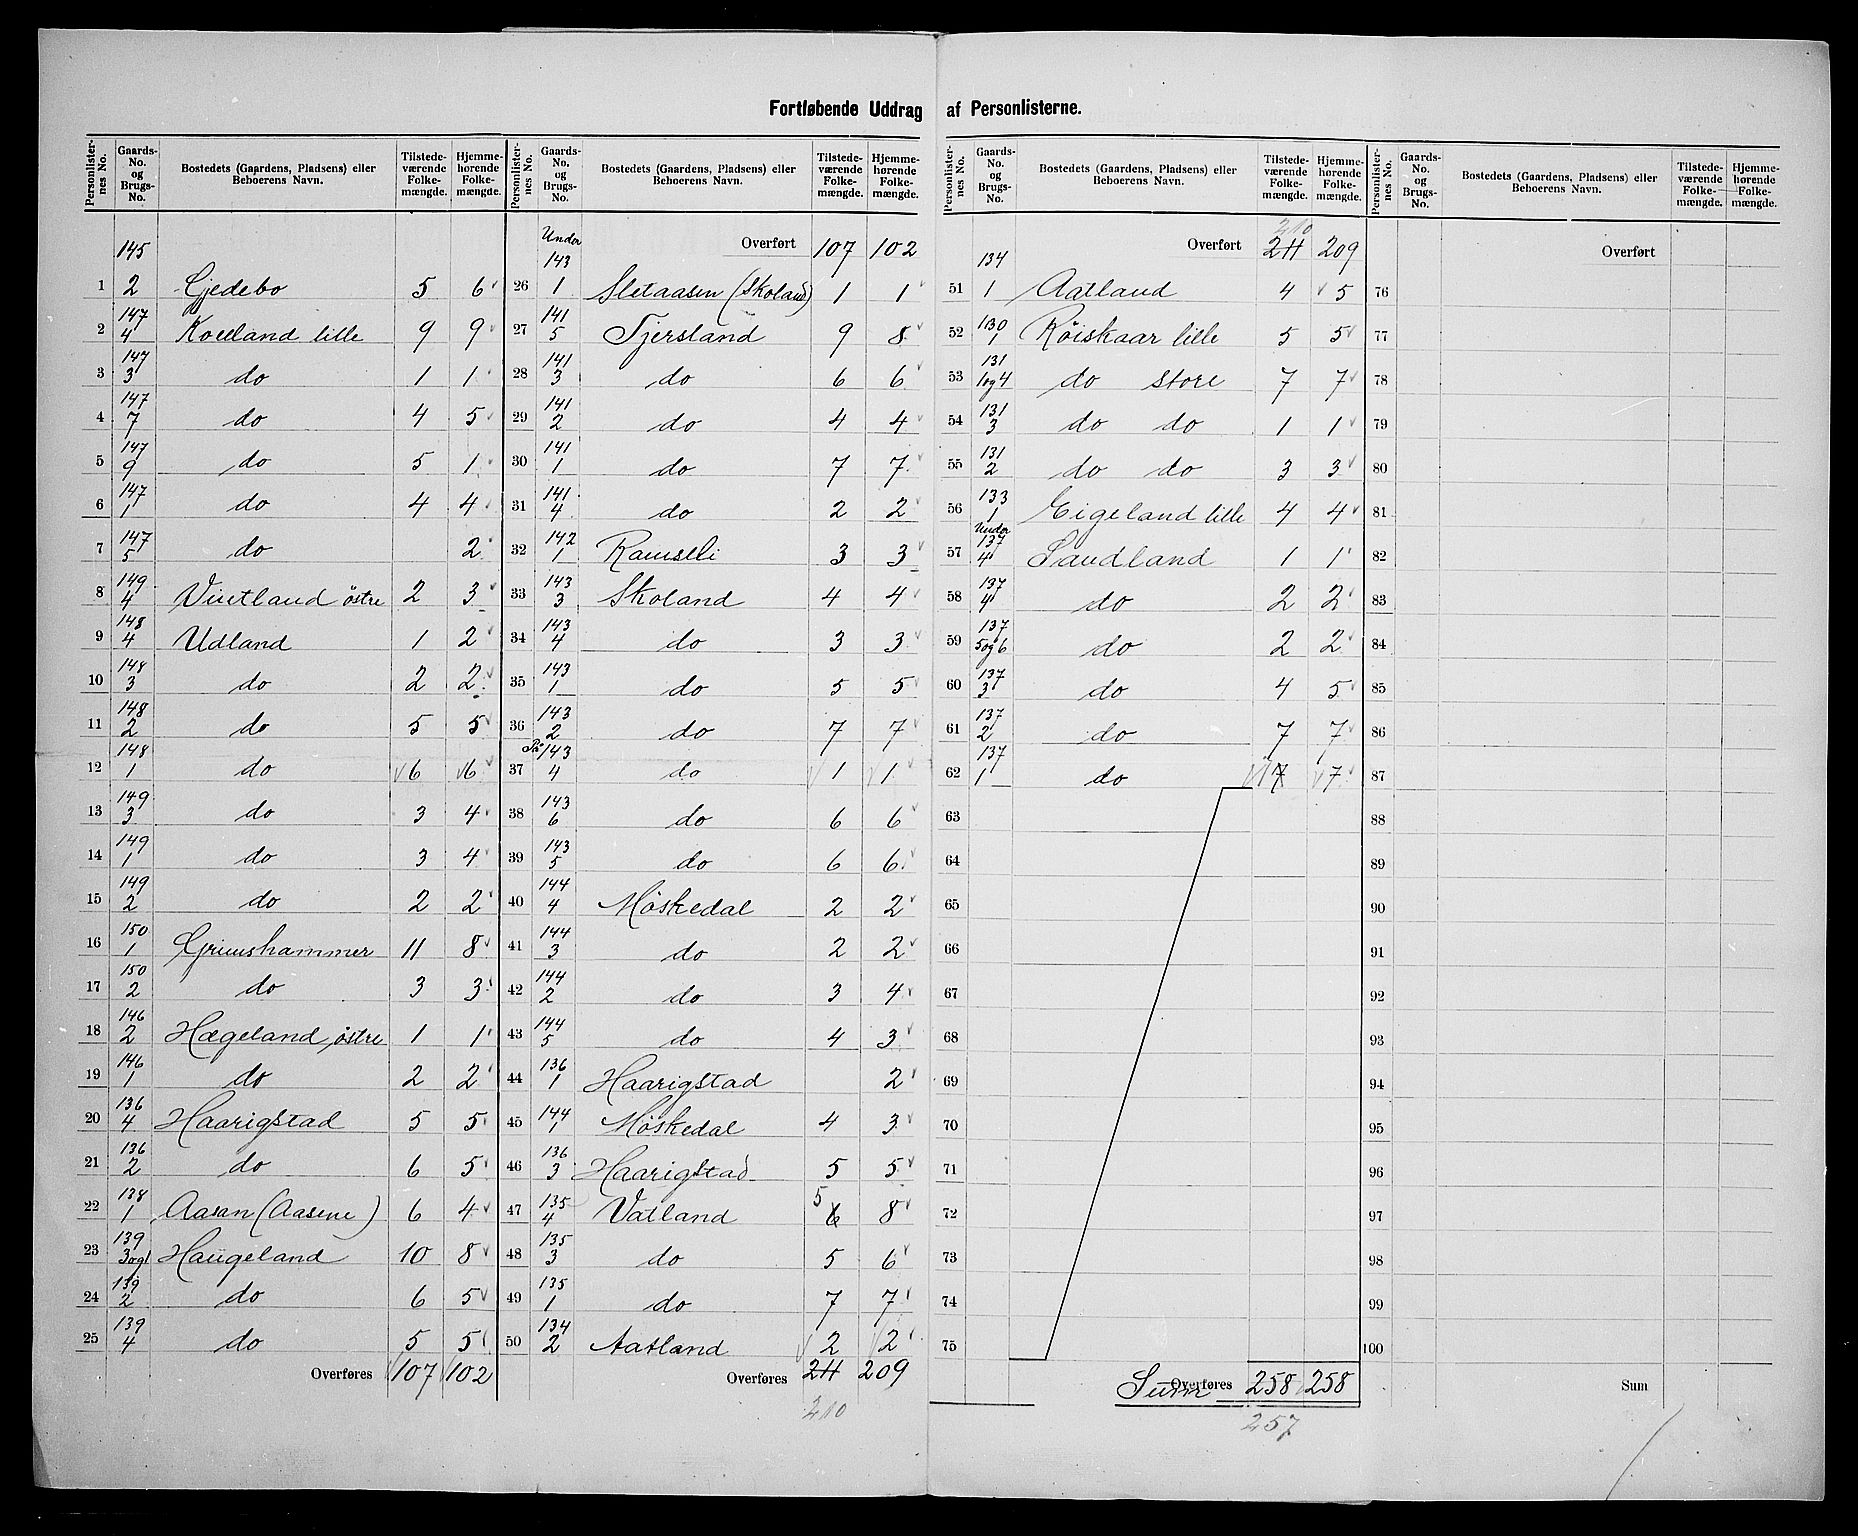 Fortløbende Uddrag af Personlisterne.
Personlisternes No. | Gaards-No. og Brugs-No. | Bostedets (Gaardens, Pladsens) eller Beboerens Navn. | Tilstedeværende Folkemængde. | Hjemmehørende Folkemængde.
1 | 145 2 | Gjedebo | 5 | 6
2 | 147 4 | Koelland lille | 9 | 9
3 | 147 3 | do | 1 | 1
4 | 147 7 | do | 4 | 5
5 | 147 9 | do | 5 | 1
6 | 147 1 | do | 4 | 4
7 | 147 5 | do | | 2
8 | 149 4 | Vintland østre | 2 | 3
9 | 148 4 | Udland | 1 | 2
10 | 148 3 | do | 2 | 2
11 | 148 2 | do | 5 | 5
12 | 148 1 | do | 6 | 6
13 | 149 3 | do | 3 | 4
14 | 149 1 | do | 3 | 4
15 | 149 2 | do | 2 | 2
16 | 150 1 | Grimshammer | 11 | 8
17 | 150 2 | do | 3 | 3
18 | 146 2 | Hægeland østre | 1 | 1
19 | 146 1 | do | 2 | 2
20 | 136 4 | Haarigstad | 5 | 5
21 | 136 2 | do | 6 | 5
22 | 138 1 | Aasan (Aasene) | 6 | 4
23 | 139 3og1 | Haugeland | 10 | 8
24 | 139 2 | do | 6 | 5
25 | 139 4 | do | 5 | 5
Overføres 107 102
Personlisternes No. | Gaards-No. og Brugs-No. | Bostedets (Gaardens, Pladsens) eller Beboerens Navn. | Tilstedeværende Folkemængde. | Hjemmehørende Folkemængde.
Overført 107 102
26 | Under 143 1 | Sletaasen (Skoland) | 1 | 1
27 | 141 5 | Tjersland | 9 | 8
28 | 141 3 | do | 6 | 6
29 | 141 2 | do | 4 | 4
30 | 141 1 | do | 7 | 7
31 | 141 4 | do | 2 | 2
32 | 142 1 | Ramsli | 3 | 3
33 | 143 3 | Skoland | 4 | 4
34 | 143 4 | do | 3 | 3
35 | 143 1 | do | 5 | 5
36 | 143 2 | do | 7 | 7
37 | Pa 143 4 | do | 1 | 1
38 | 143 6 | do | 6 | 6
39 | 143 5 | do | 6 | 6
40 | 144 4 | Møskedal | 2 | 2
41 | 144 3 | do | 2 | 2
42 | 144 2 | do | 3 | 4
43 | 144 5 | do | 4 | 3
44 | 136 1 | Haarigstad | | 2
45 | 144 1 | Møskedal | 4 | 3
46 | 136 3 | Haarigstad | 5 | 5
47 | 135 4 | Vatland | 5 6 | 8
48 | 135 3 | do | 5 | 6
49 | 135 1 | do | 7 | 7
50 | 134 2 | Aatland | 2 | 2
Overføres 211 209
210
Personlisternes No. | Gaards-No. og Brugs-No. | Bostedets (Gaardens, Pladsens) eller Beboerens Navn. | Tilstedeværende Folkemængde. | Hjemmehørende Folkemængde.
210
Overført 211 209
51 | 134 1 | Aatland | 4 | 5
52 | 130 1 | Røiskaar lille | 5 | 5
53 | 131 1og4 | do store | 7 | 7
54 | 131 3 | do do | 1 | 1
55 | 131 2 | do do | 3 | 3
56 | 133 1 | Eigeland lille | 4 | 4
57 | Under 137 4 | Saudland | 1 | 1
58 | 137 4 | do | 2 | 2
59 | 137 5og6 | do | 2 | 2
60 | 137 3 | do | 4 | 5
61 | 137 2 | do | 7 | 7
62 | 137 1 | do | 7 | 7
63
64
65
66
67
68
69
70
71
72
73
74
75
Sum Overføres 258 258
257
Personlisternes No. | Gaards-No. og Brugs-No. | Bostedets (Gaardens, Pladsens) eller Beboerens Navn. | Tilstedeværende Folkemængde. | Hjemmehørende Folkemængde.
Overført
76
77
78
79
80
81
82
83
84
85
86
87
88
89
90
91
92
93
94
95
96
97
98
99
100
Sum